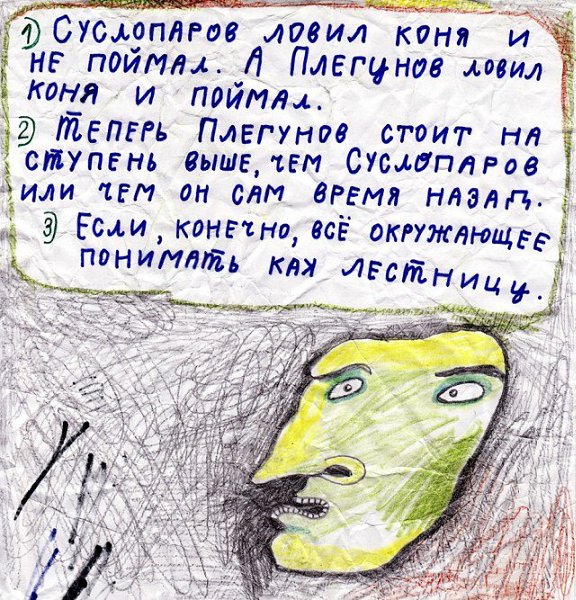 1) Суслопаров ловил коня и
не поймал. А Плегунов ловил
коня и поймал.
2) Теперь Плегунов стоит на
ступень выше, чем Суслопаров
или чем он сам время назад.
3) Если, конечно, всё окружающее
понимать как лестницу.